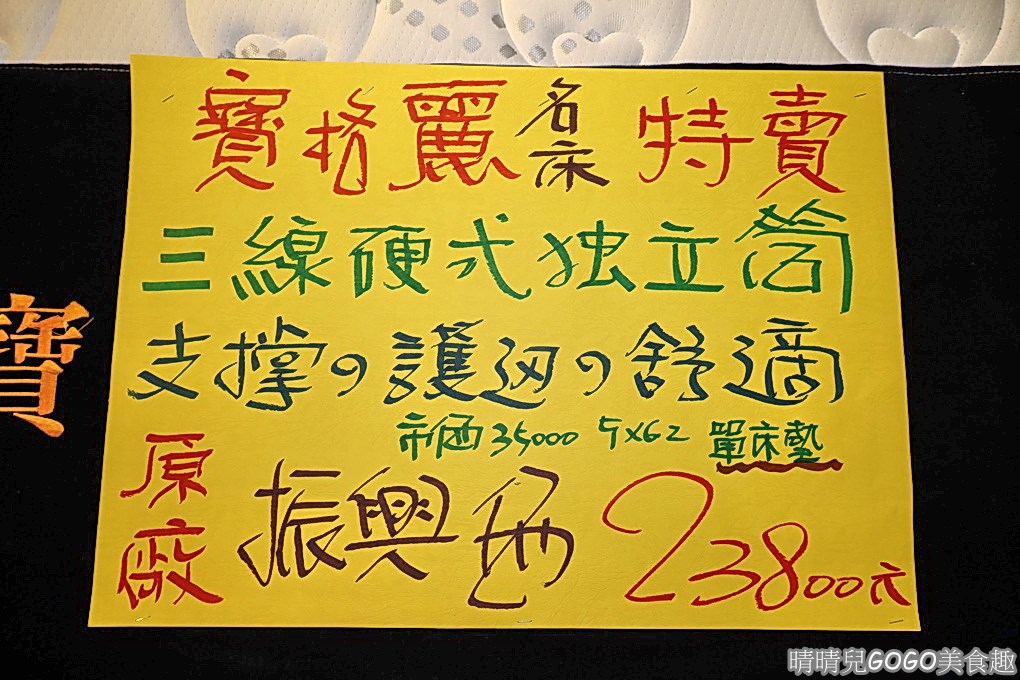 寶格麗名床 特賣
三線硬式独立筒
支撐の護迈の舒適
市価35000 5x62 單床墊
原廠 振興価 23800元
寶
晴晴兒GOGO美食趣